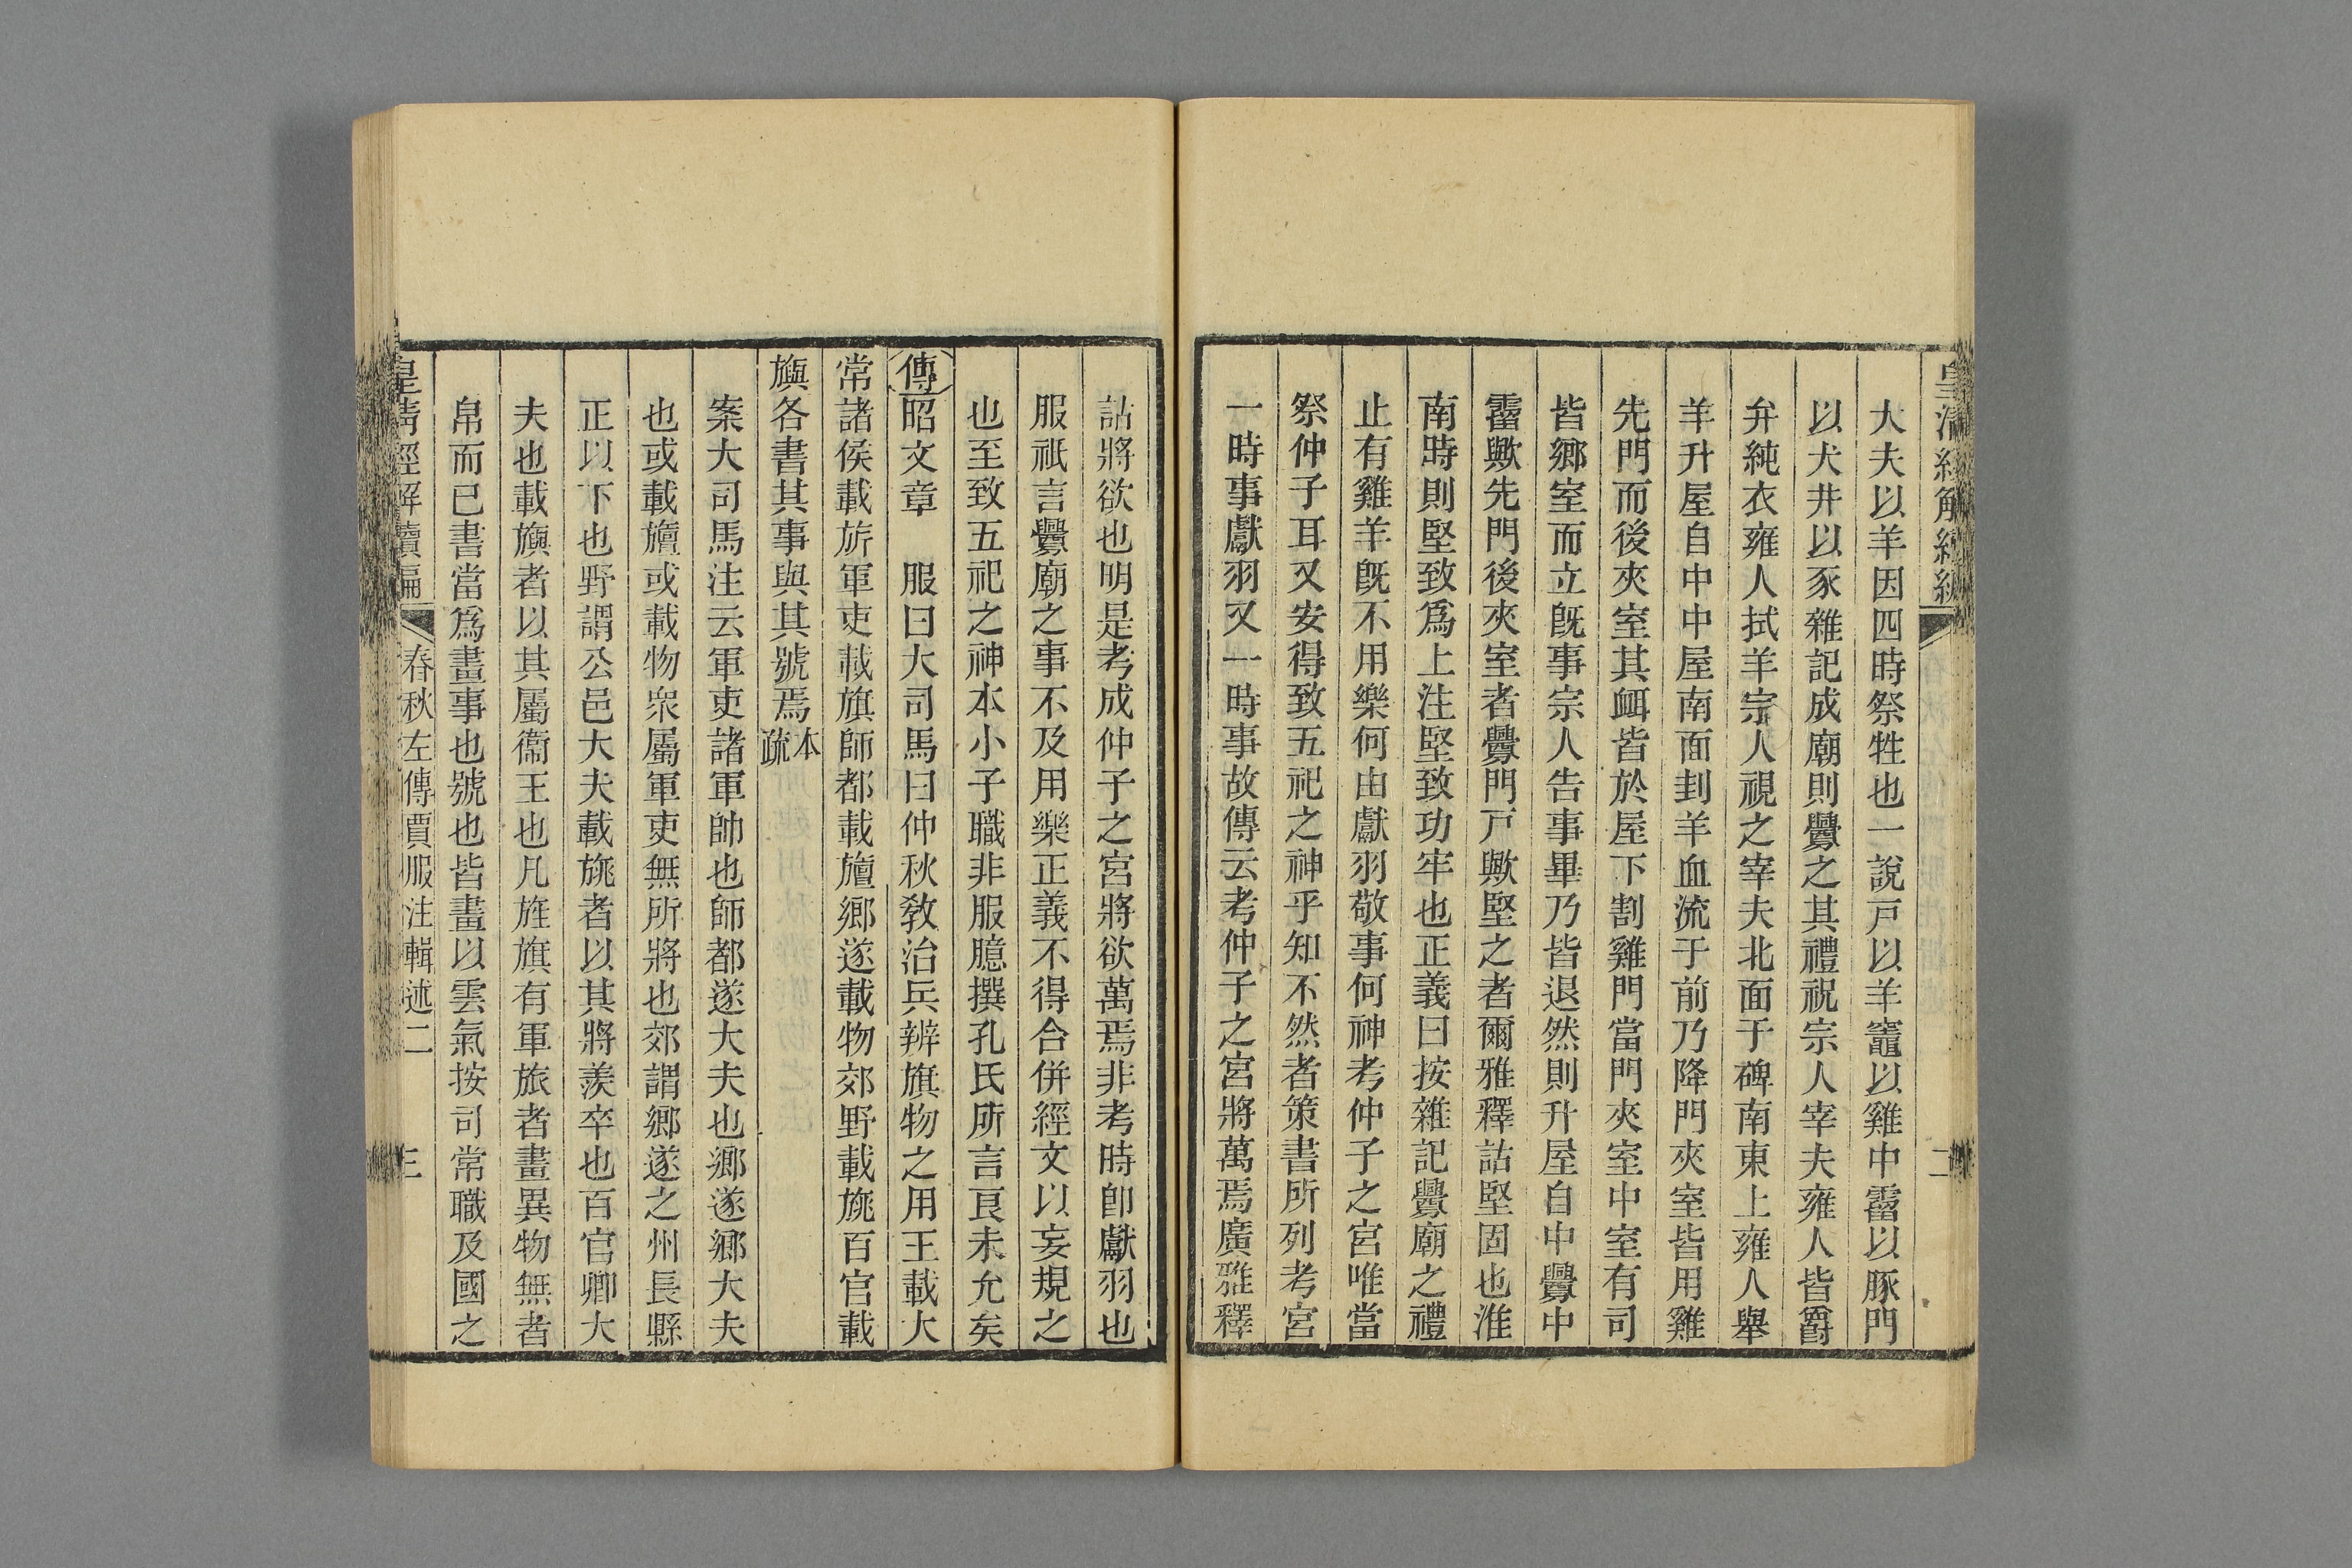 大夫以羊因四時祭牲也一說戸以羊竈以雞中霤以豚門
以犬井以豕雜記成廟則釁之其禮祝宗人宰夫雍人皆爵
弁純衣雍人拭羊宗人視之宰夫北面于碑南東上雍人舉
羊升屋自中中屋南面刲羊血流于前乃降門夾室皆用雞
先門而後夾室其衈皆於屋下割雞門當門夾室中室有司
皆鄉室而立既事宗人告事畢乃皆退然則升屋自中釁中
霤歟先門後夾室者釁門戸歟堅之者爾雅釋詁堅固也淮
南時則堅致爲上注堅致功牢也正義曰按雜記釁廟之禮
止有雞羊既不用樂何由獻羽敬事何神考仲子之宮唯當
祭仲子耳又安得致五祀之神乎知不然者策書所列考宮
一時事獻羽又一時事故傳云考仲子之宮將萬焉廣雅釋
詁將欲也明是考成仲子之宮將欲萬焉非考時卽獻羽也
服祇言釁廟之事不及用樂正義不得合併經文以妄規之
也至致五祀之神本小子職非服臆撰孔氏所言良未允矣
傳昭文章　服曰大司馬曰仲秋教治兵辨旗物之用王載大
常諸侯載旂軍吏載旗師都載旜鄉遂載物郊野載旐百官載
旟各書其事與其號焉本疏
案大司馬注云軍吏諸軍帥也師都遂大夫也鄉遂鄉大夫
也或載旜或載物衆屬軍吏無所將也郊謂鄉遂之州長縣
正以下也野謂公邑大夫載旐者以其將羨卒也百官卿大
夫也載旟者以其屬衞王也凡旌旗有軍旅者畫異物無者
帛而已書當爲畫事也號也皆畫以雲氣按司常職及國之
皇清經解續編　春秋左傳賈服注輯述二　三